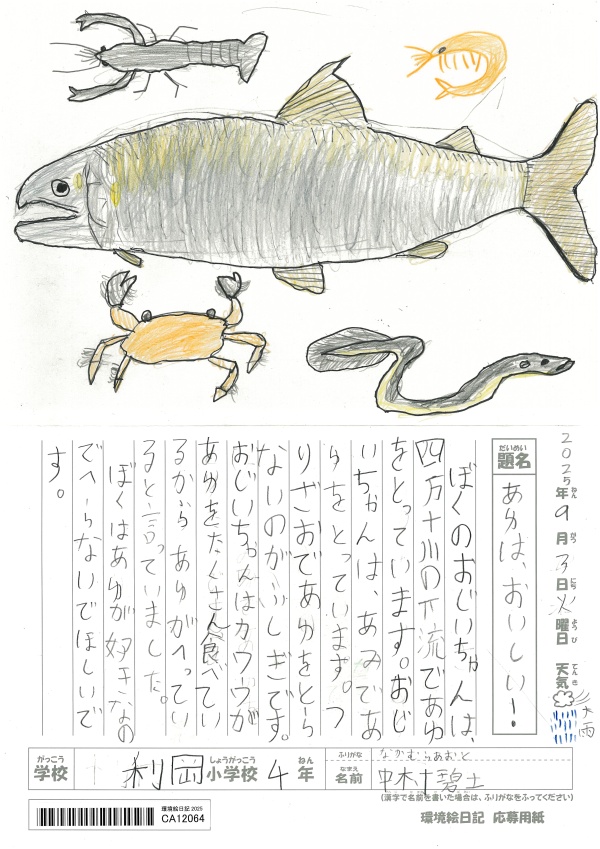 2025年ねん9月がつ3日にち火曜日ようび 天気てんき 大雨
題名だいめい あゆは、おいしい!
ぼくのおじいちゃんは、
四万十川の下流であゆ
をとっています。おじ
いちゃんは、あみであ
ゆをとっています。つ
りざおであゆをとら
ないのがふしぎです。
おじいちゃんはカワウが
あゆをたくさん食べてい
るからあゆがへってい
ると言っていました。
ぼくはあゆが好きなの
でへらないでほしいで
す。
学校がっこう 利岡小学校しょうがっこう 4年ねん
ふりがな なかむらあおと
名前なまえ 中村碧土
(漢字で名前を書いた場合は、ふりがなをふってください)
環境絵日記 応募用紙
環境絵日記2025
CA12064